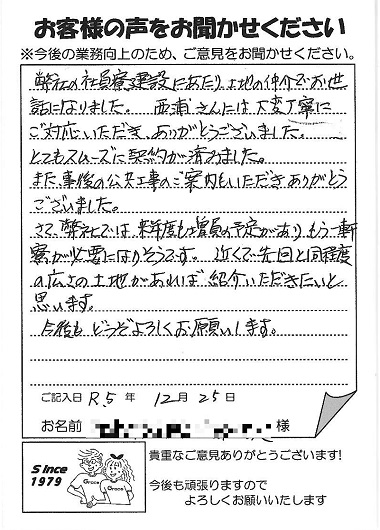 お客様の声をお聞かせください
※今後の業務向上のため、ご意見をお聞かせください。
弊社の社員寮建設にあたり、土地の仲介でお世
話になりました。 西浦さんには大変丁寧に
ご対応いただき、ありがとうございました。
とてもスムーズに契約が済みました。
また、事後の公共工事のご案内もいただきありがとう
ございました。
さて、弊社では来年度も増員の予定があり、もう一軒
寮が必要になりそうです。 近くで先回と同程度
の広さの土地があれば紹介いただきたいと
思います。
今後も どうぞよろしくお願いします。
ご記入日 R.5 年 12月 25日
お名前 様
Since
1979
Grace
Grace
貴重なご意見ありがとうございます!
今後も頑張りますので
よろしくお願いいたします